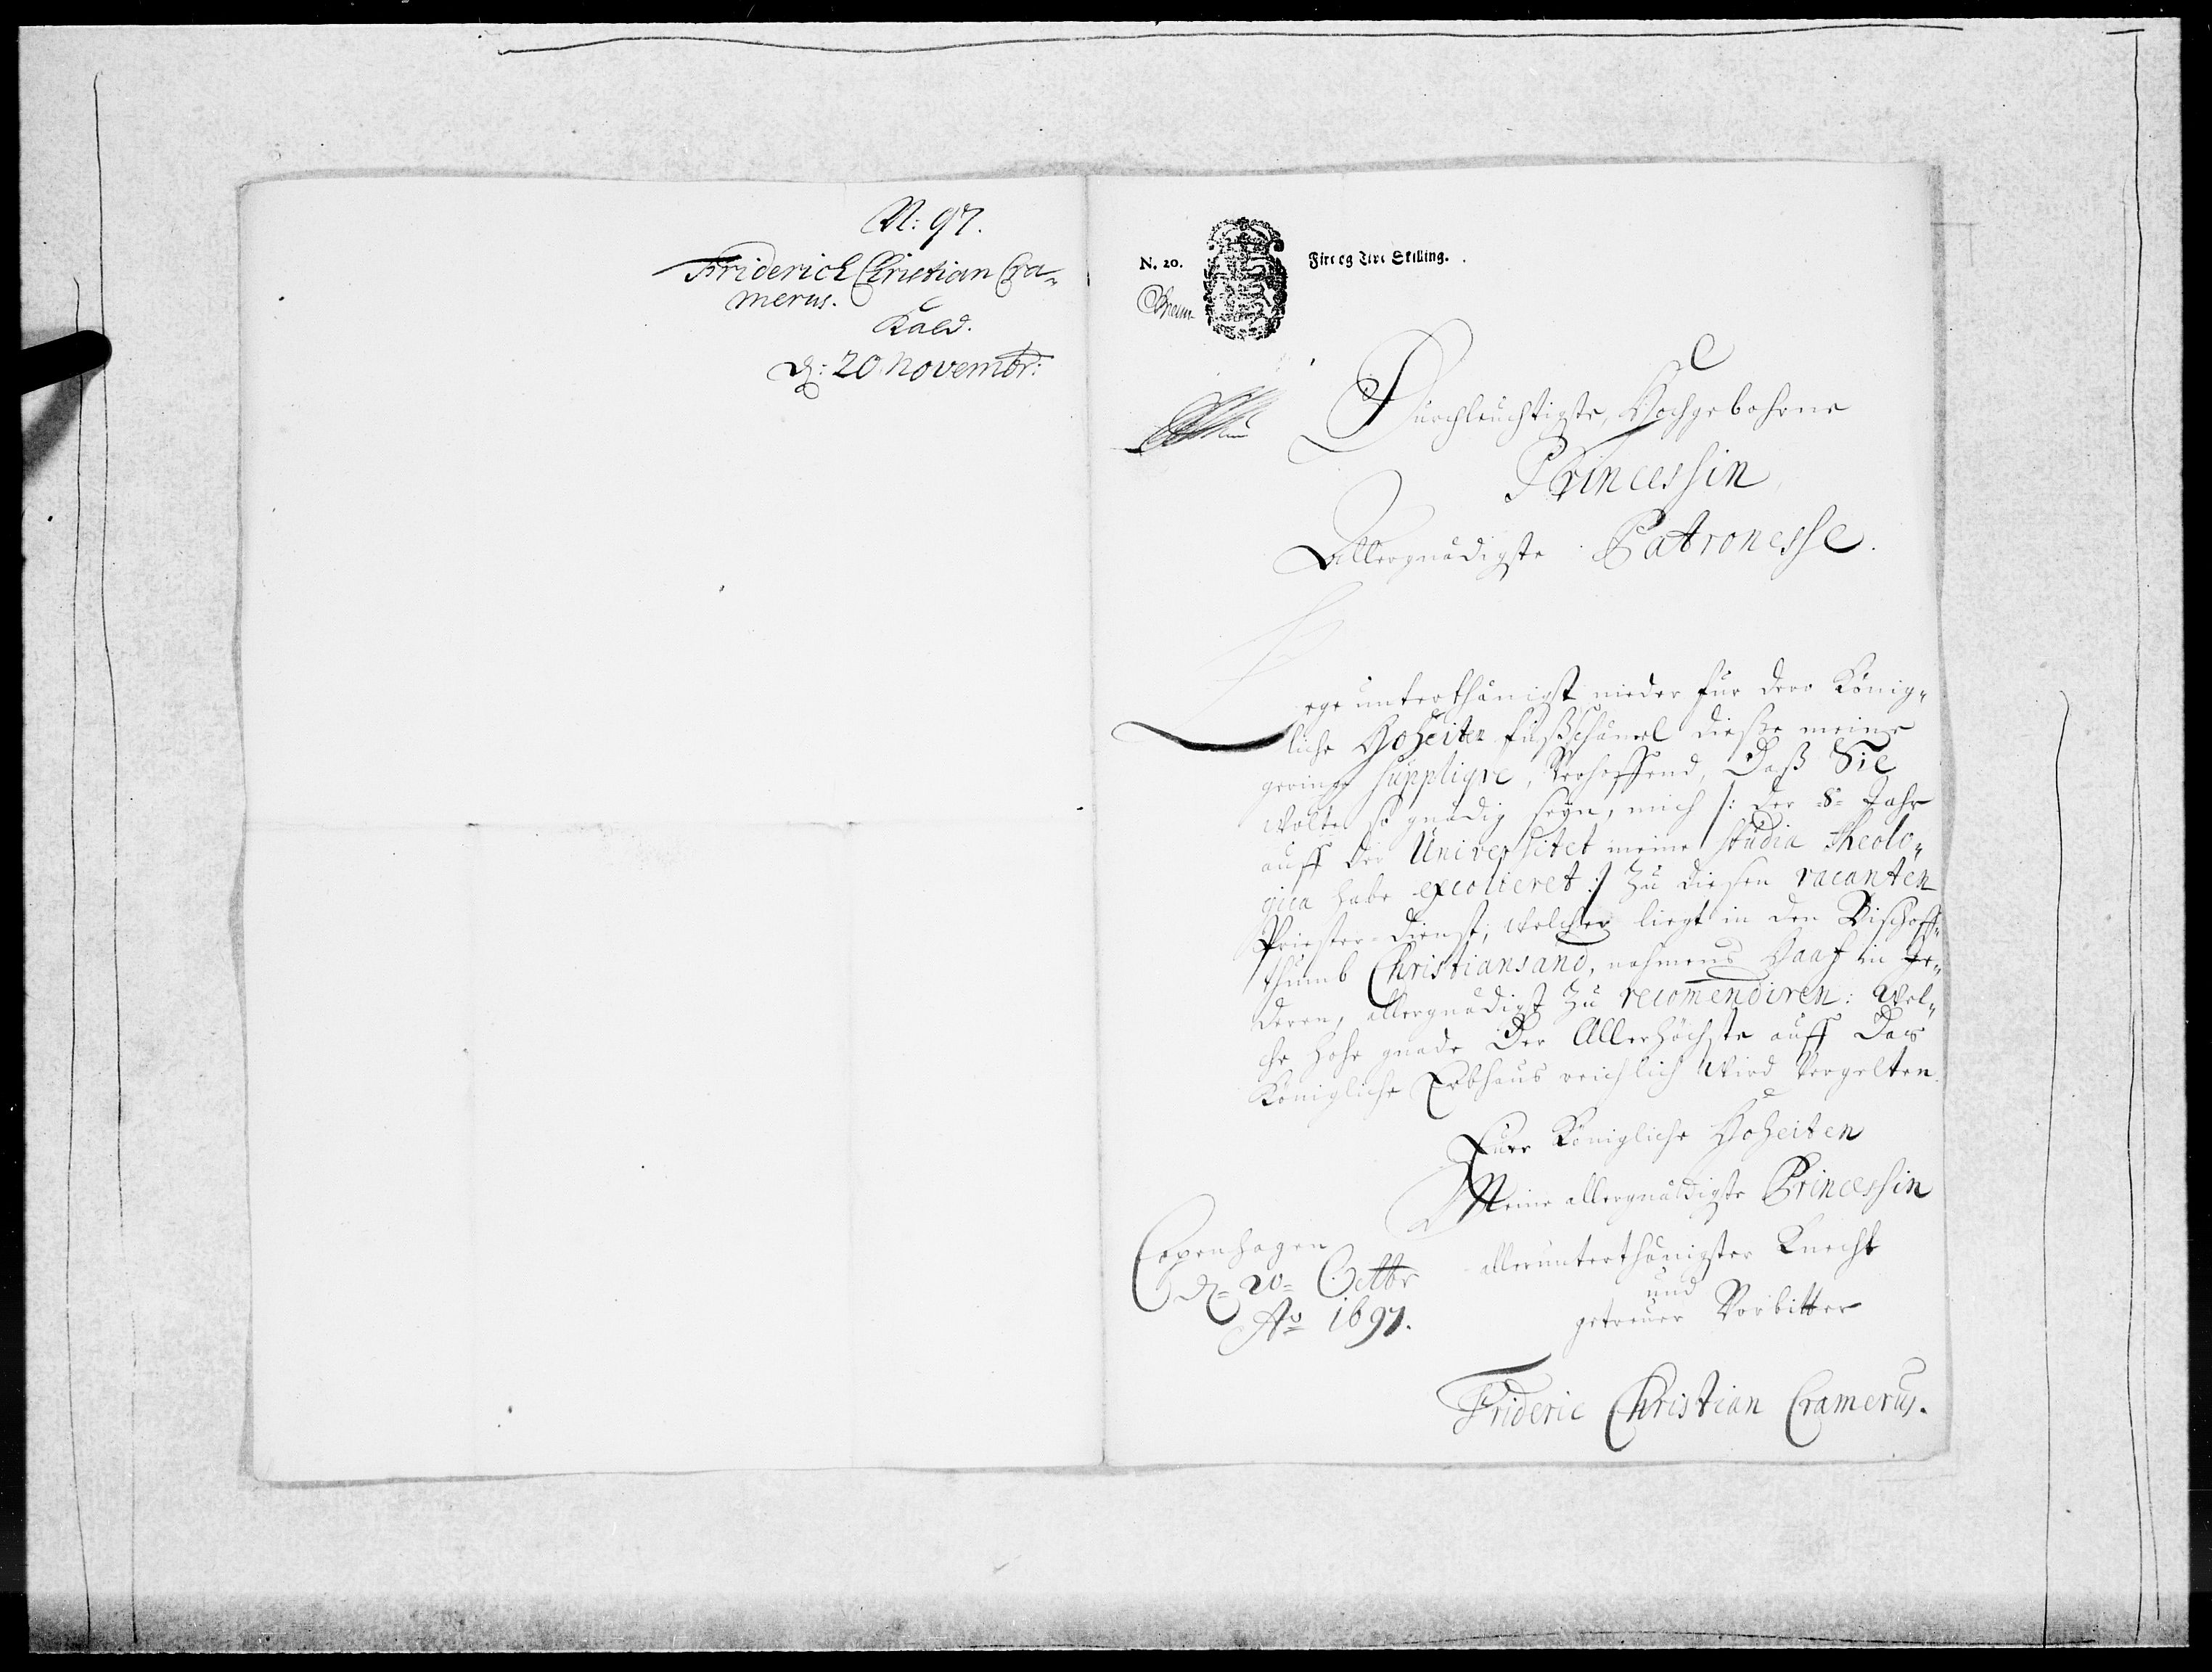 N: 97.
Friderich Christian Cra-
merus.
Kald.
d: 20 Novembr:
N. 20.
Fire og Tive Skilling.
Durchleuchtigste, Hochgebohrne
Princessin
Allergnädigste Patronesse.
Lege unterthänigst nieder für dero König-
liche Hoheiten fußschämel diesse meine
geringe suppliqve, Verhoffend, Daß Sie
wolte so gnädig seyn, mich /: der 8 Jahr
auff der Universitet meine studia theolo-
gica habe excolieret :/ zu diesen vacanten
Priester-dienst, welcher liegt in den Bischoff-
thumb Christiansand, nahmens Haaf in Je-
deren, allergnädigst zu recomendiren: Wel-
che hohe gnade Der Allerhöchste auff Das
Königliche Erbhaus reichlich wird Vergelten.
Euer Königliche Hoheiten
Meine allergnädigste Princessin
allerunterthänigster Knecht
und
getreuer Vorbitter
Copenhagen
d= 20= Octbr
Ao 1697.
Frideric Christian Cramerus.